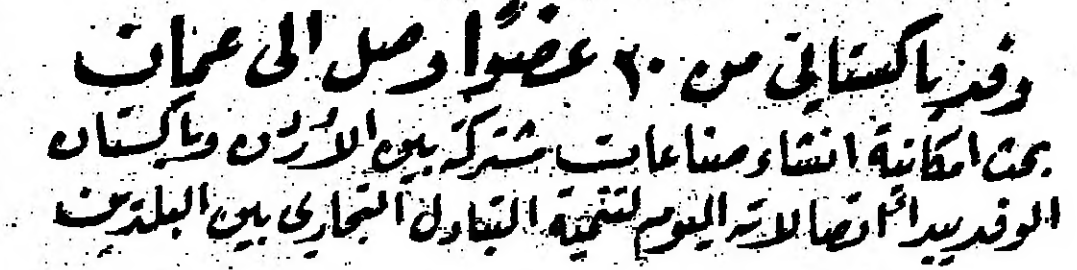 وفد باكستاني من ٢٠ عضوًا وصل الى عمان
بحث امكانية انشاء صناعات مشتركة بين الاردن وباكستان
الوفد يبدأ اتصالاته اليوم لتنمية التبادل التجاري بين البلدين